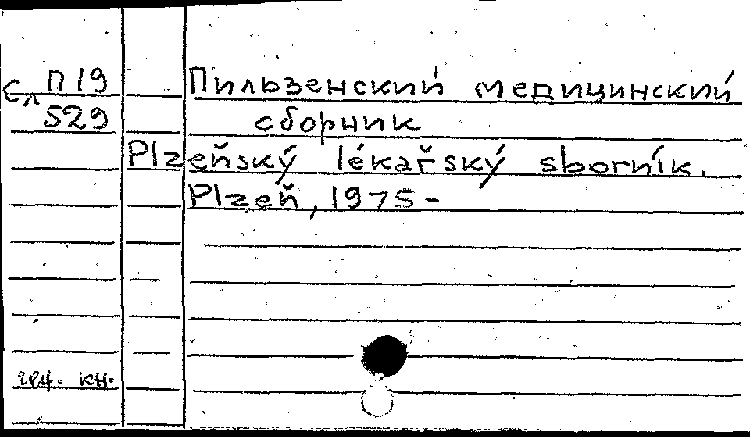 П19 Пильзенский медицинский
Сл 529 сборник
Plzeňský lékařský sborník.
Plzeň, 1975-
кн.